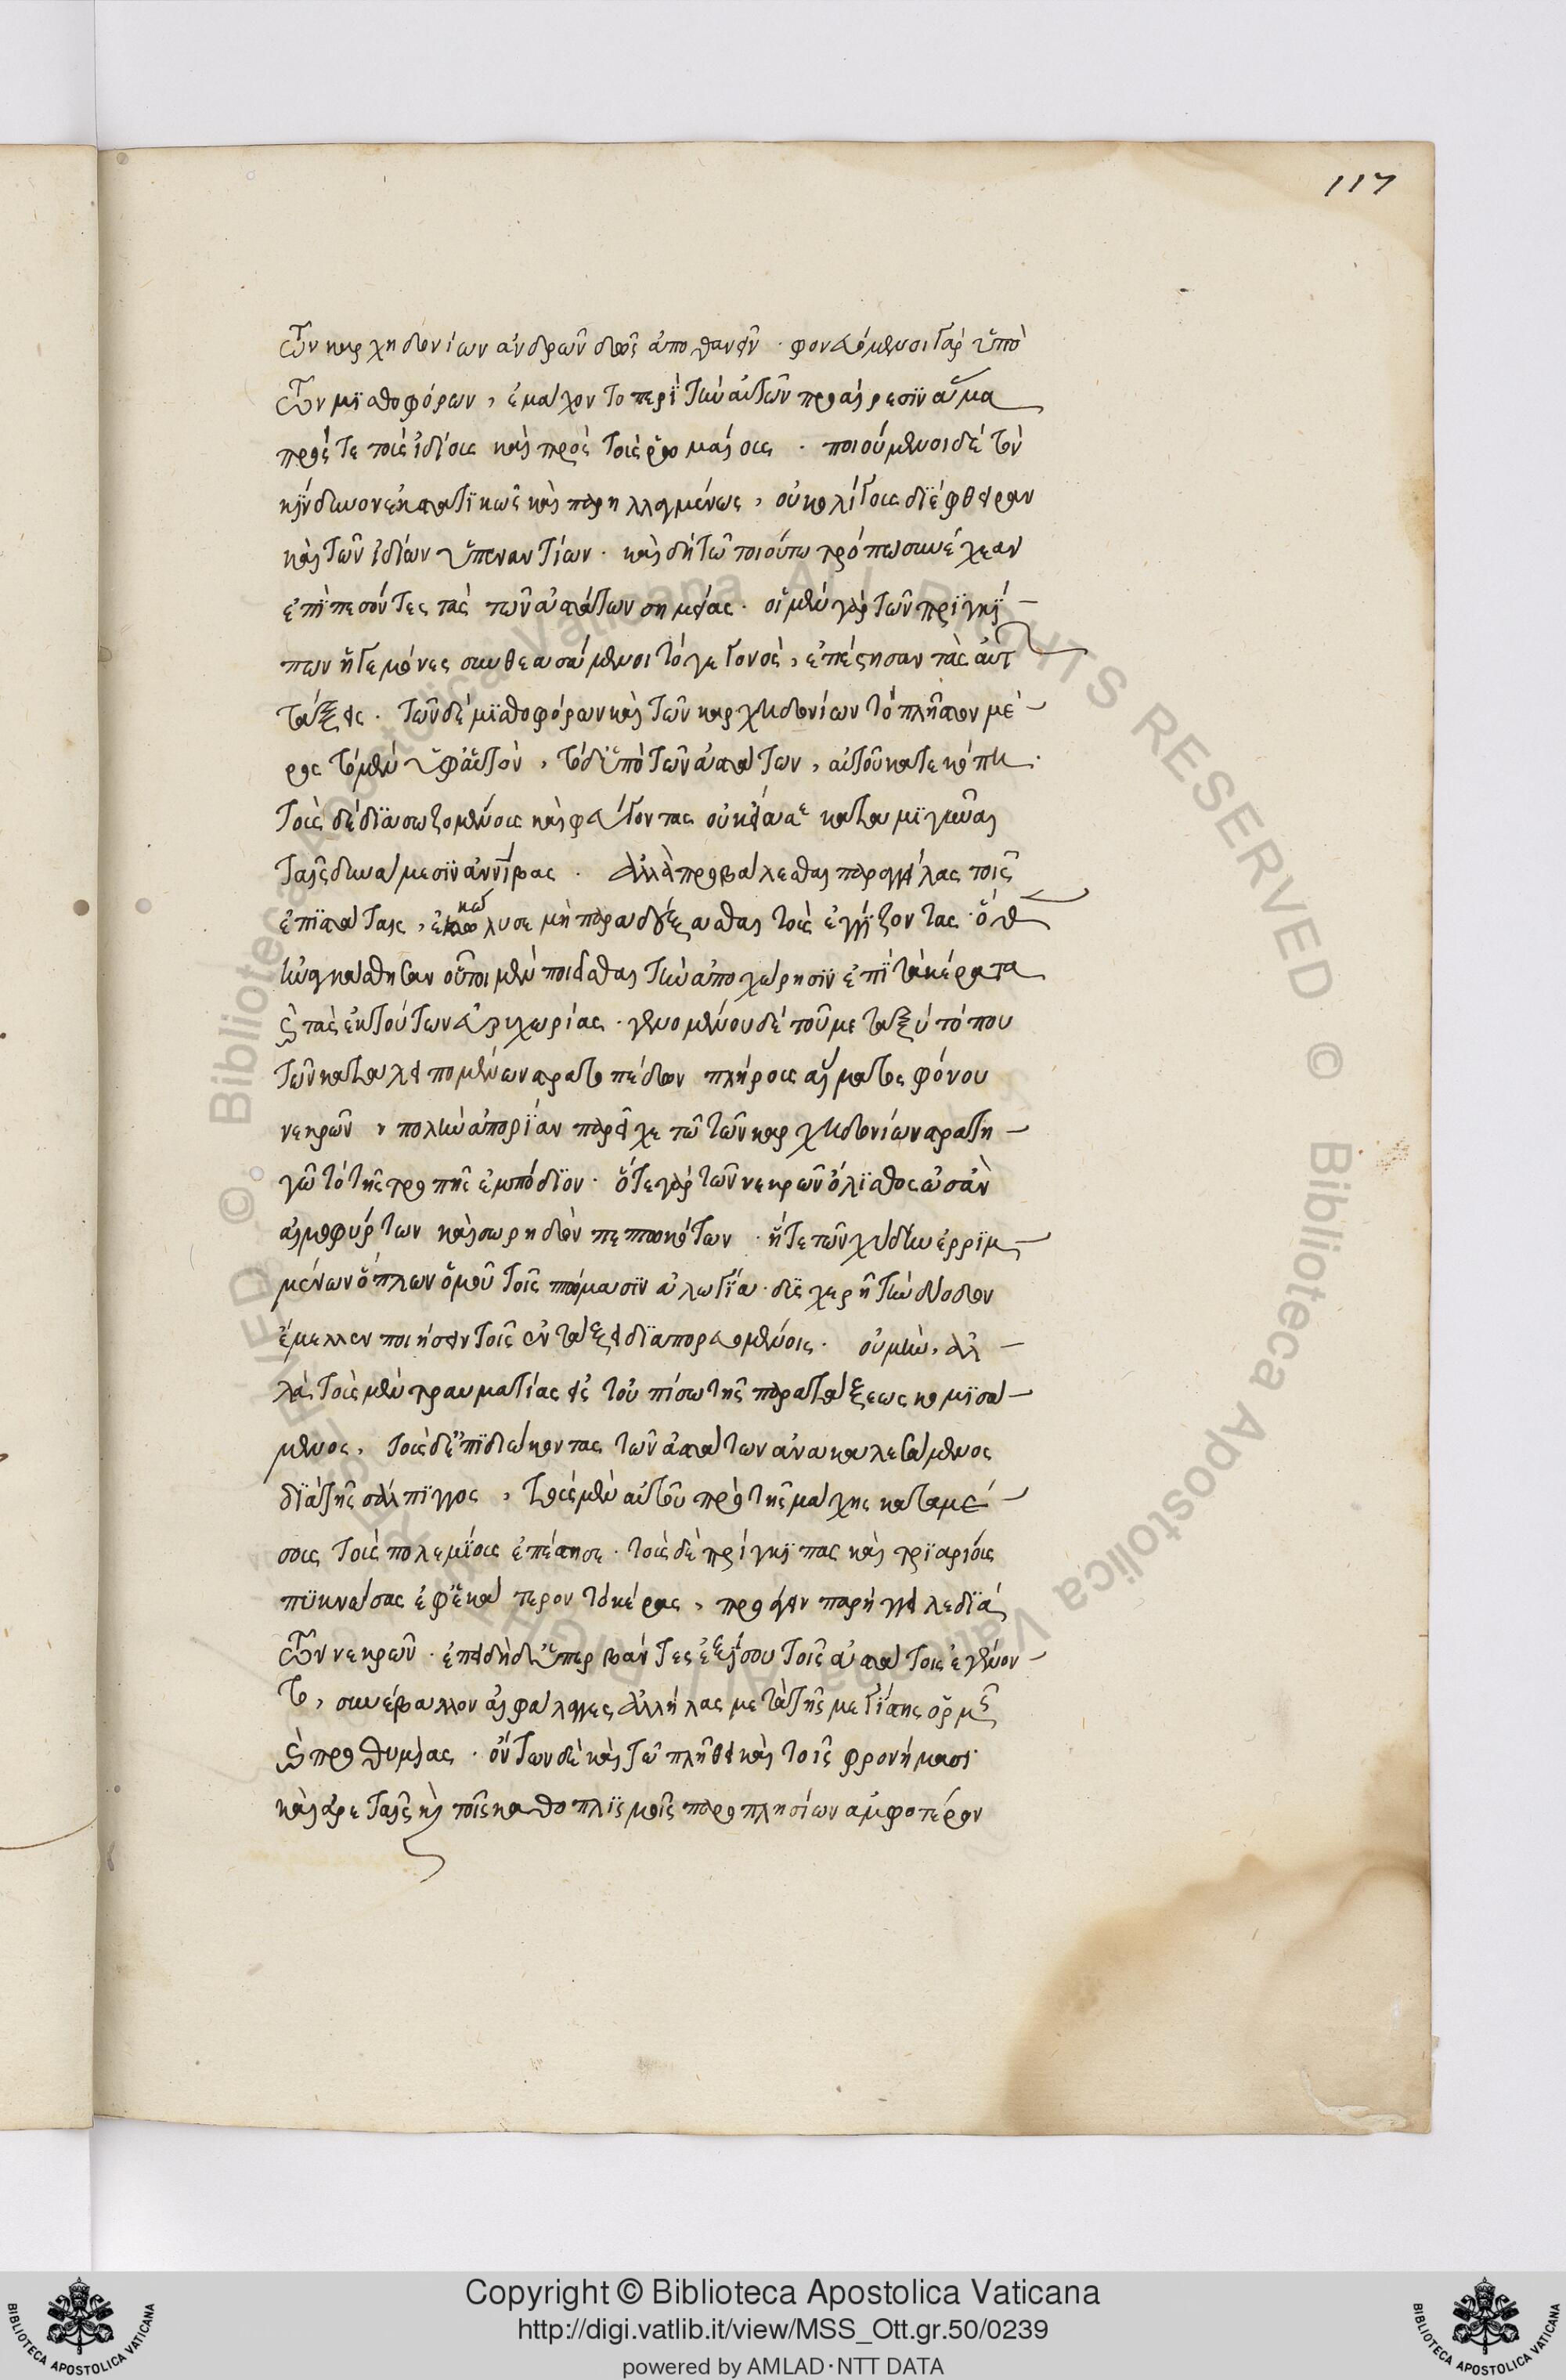 τῶν καρχηδονίων ἀνδρωδῶς ἀποθανεῖν · φονευόμενοι γὰρ ὑπὸ
τῶν μισθοφόρων, ἐμάχοντο περὶ τὴν αὐτῶν προαίρεσιν ἅμα
πρός τε τοὺς ἰδίους καὶ πρὸς τοὺς ῥωμαίους · ποιούμενοι δὲ τὸν
κίνδυνον ἐκστατικῶς καὶ παρηλλαγμένως, οὐκ ὀλίγους διέφθειραν
καὶ τῶν ἰδίων ὑπεναντίων · καὶ δὴ τῶ τοιούτω τρόπω συνέχεαν
ἐπιπεσόντες τὰς τῶν ἀστάτων σημείας · οἱ μὲν γὰρ τῶν πριγκί-
πων ἡγεμόνες συνθεασάμενοι τὸ γεγονὸς, ἐπέστησαν τὰς αὐτῶν
τάξεις · τῶν δὲ μισθοφόρων καὶ τῶν καρχηδονίων τὸ πλεῖστον μέ-
ρος τὸ μὲν ὑφ' αὑτῶν, τὸ δ' ὑπὸ τῶν ἀστάτων, αὐτοῦ κατεκόπη ·
τοὺς δὲ διασωζομένους καὶ φεύγοντας οὐκ εἴασε καταμιγῆναι
ταῖς δυνάμεσιν ἀννίβας · ἀλλὰ προβαλέσθαι παραγγείλας τοῖς
ἐπιστάταις, ἐκώλυσε μὴ παραδέξασθαι τοὺς ἐγγίζοντας · ὅθεν
ἠναγκάσθησαν οὗτοι μὲν ποιεῖσθαι τὴν ἀποχώρησιν ἐπὶ τὰ κέρατα
καὶ τὰς ἐκ τούτων εὐρυχωρίας · γενομένου δὲ τοῦ μεταξὺ τόπου
τῶν καταλειπομένων στρατοπέδων πλήρους αἵματος φόνου
νεκρῶν, πολλὴν ἀπορίαν παρεῖχε τῶ τῶν καρχηδονίων στρατη-
γῶ τὸ τῆς τροπῆς ἐμπόδιον · ὅ τε γὰρ τῶν νεκρῶν ὄλισθος ὡσὰν
αἱμοφύρτων καὶ σωρηδὸν πεπτωκότων · ἥ τε τῶν χύδην ἐρριμ-
μένων ὅπλων ὁμοῦ τοῖς πτώμασιν ἀλωγία · δυσχερῆ τὴν δίοδον
ἔμελλεν ποιήσειν τοῖς ἐν τάξει διαπορευομένοις · οὐ μὴν, ἀλ-
λὰ τοὺς μὲν τραυματίας εἰς τοὐπίσω τῆς παρατάξεως κομισά-
μενος, τοὺς δ' ἐπιδιώκοντας τῶν ἀστάτων ἀνακαλεσάμενος
διὰ τῆς σάλπιγγος, τοὺς μὲν αὐτοῦ πρὸ τῆς μάχης κατὰ μέ-
σους τοὺς πολεμίους ἐπέστησε · τοὺς δὲ πρίγκιπας καὶ τριαρίους
πυκνώσας ἐφ' ἑκάτερον τὸ κέρας, προάγειν παρήγγειλε διὰ
τῶν νεκρῶν · ἐπειδὴ δ' ὑπερβάντες ἐξίσου τοῖς ἀστάτοις ἐγένον-
το, συνέβαλλον αἱ φάλαγγες ἀλλήλαις μετὰ τῆς μεγίστης ὁρμῆς
καὶ προθυμίας · ὄντων δὲ καὶ τῶ πλήθει καὶ τοῖς φρονήμασι
καὶ ἀρεταῖς καὶ τοῖς καθοπλισμοῖς παραπλησίων ἀμφοτέρων
117
Copyright © Biblioteca Apostolica Vaticana
http://digi.vatlib.it/view/MSS_Ott.gr.50/0239
powered by AMLAD·NTT DATA